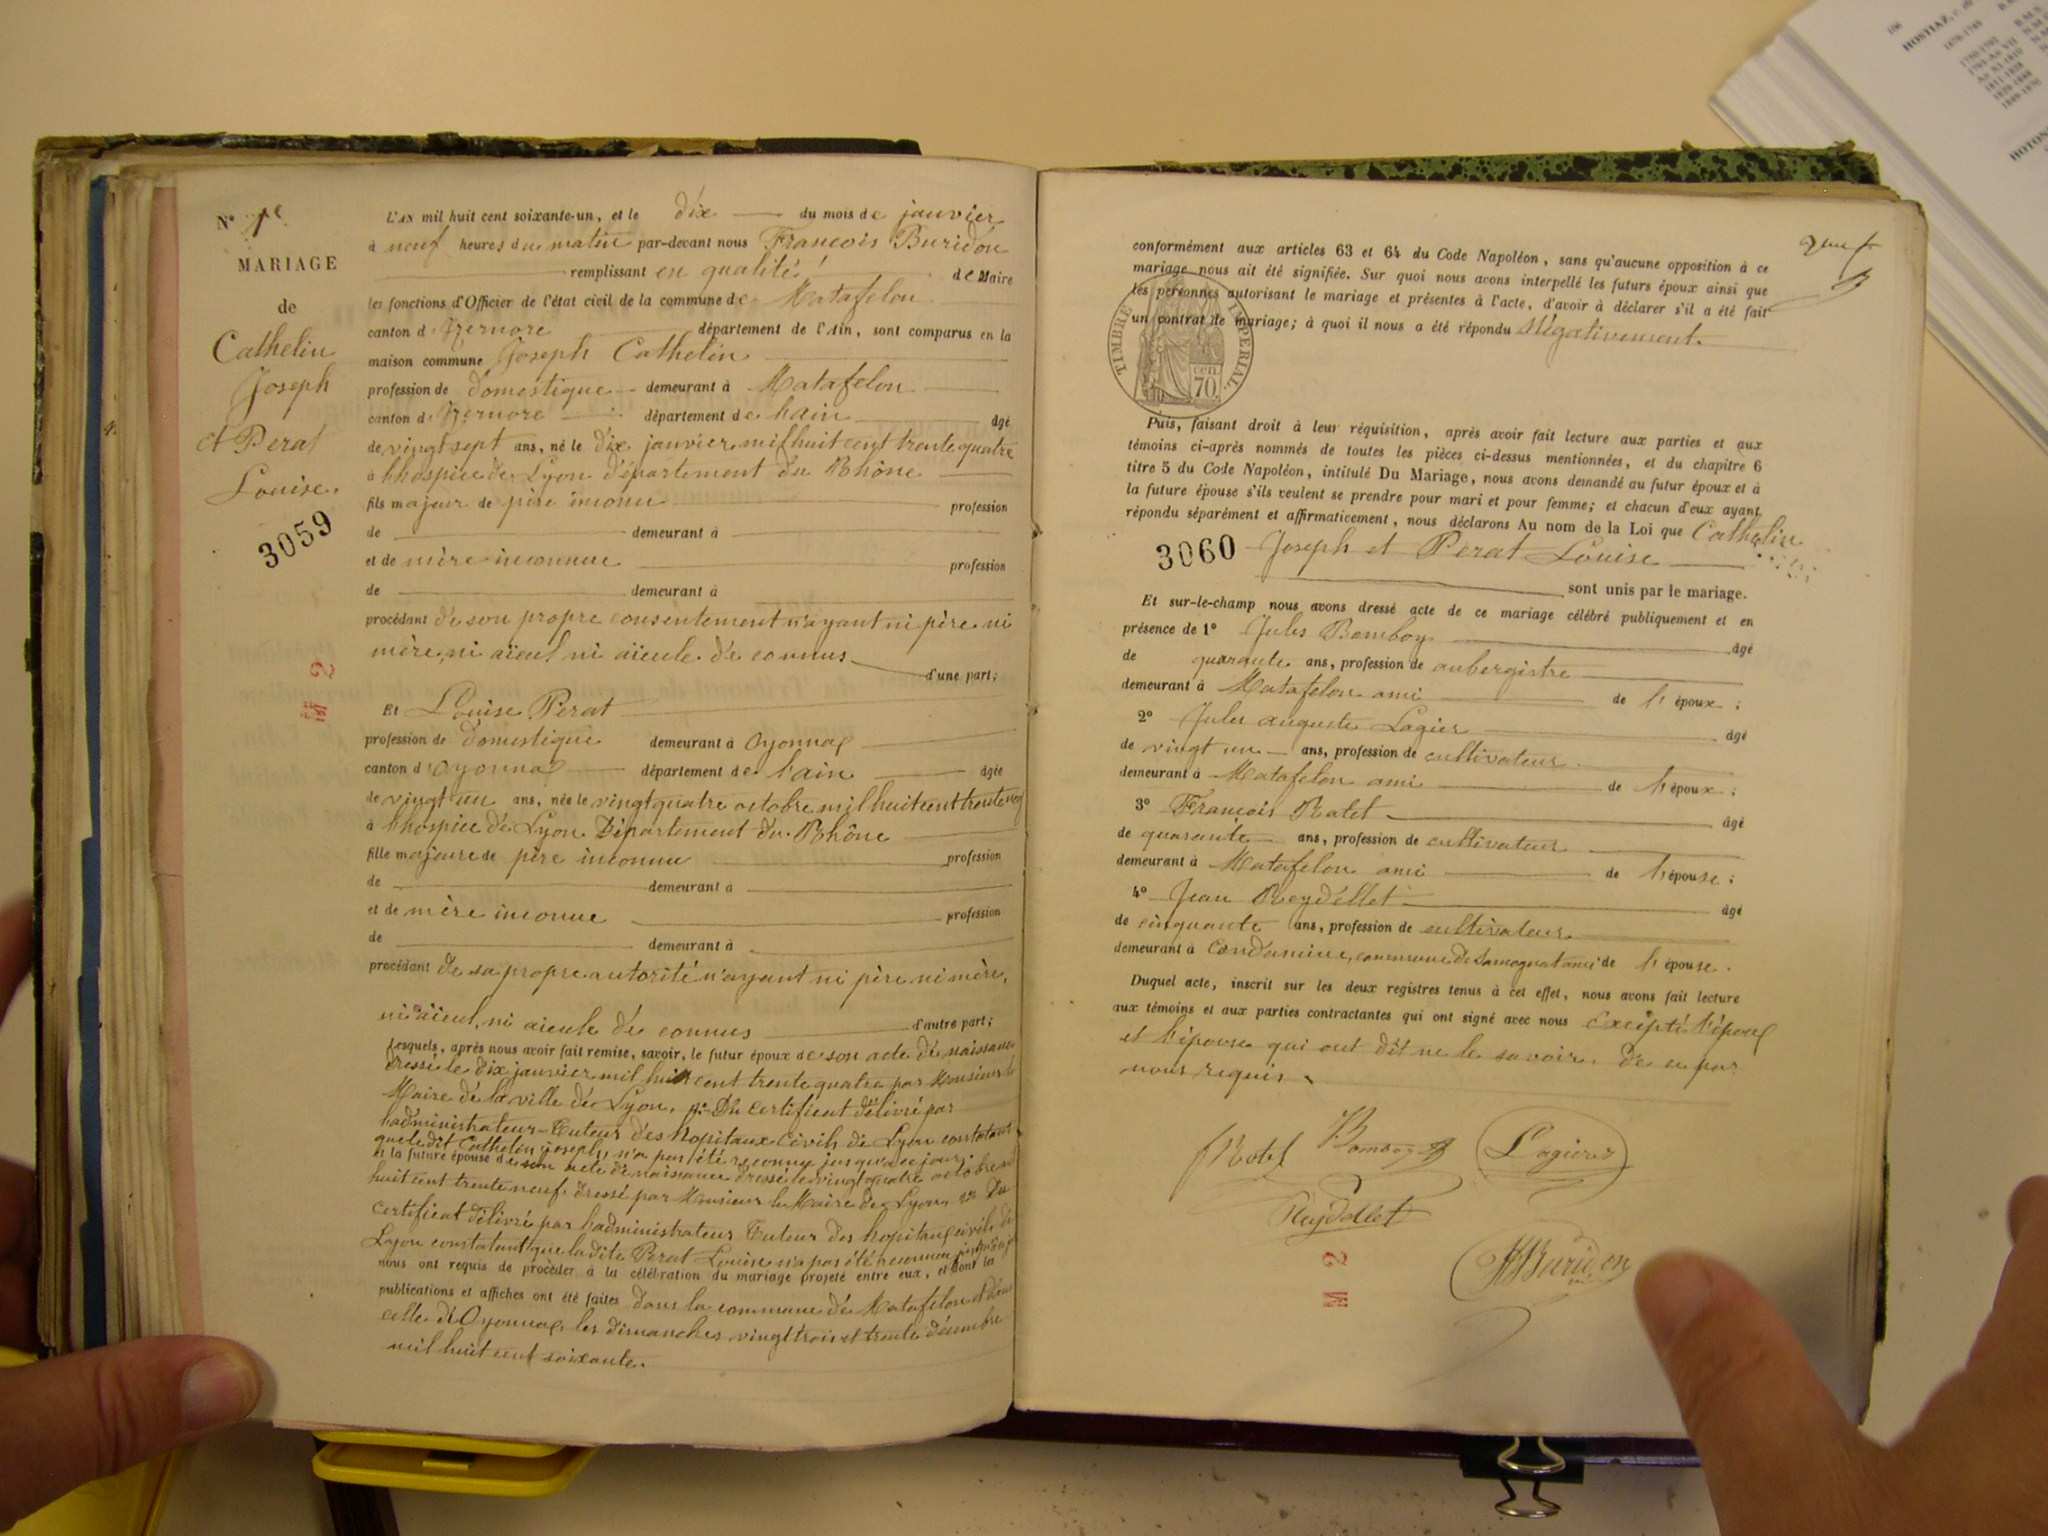 N° 1er
MARIAGE
de
Cathelin
Joseph
et Perat
Louise.
3059
M 2
L'AN mil huit cent soixante-un, et le dix du mois de janvier
à neuf heures du matin par-devant nous François Buridon
remplissant en qualité de Maire
les fonctions d'Officier de l'état civil de la commune de Matafelon
canton d'Izernore département de l'Ain, sont comparus en la
maison commune Joseph Cathelin
profession de domestique demeurant à Matafelon
canton d'Izernore département de l'ain âgé
de vingt sept ans, né le dix janvier mil huit cent trente quatre
à l'hospice de Lyon département du Rhône
fils majeur de père inconu profession
de demeurant à
et de mère inconnue profession
de demeurant à
procédant de son propre consentement n'ayant ni père ni
mère, ni aïeul ni aïeule de connus d'une part;
Et Louise Perat
profession de domestique demeurant à Oyonnax
canton d'oyonnax département de l'ain âgée
de vingt un ans, née le vingt quatre octobre mil huit cent trente neuf
à l'hospice de Lyon Département du Rhône
fille majeure de père inconnu profession
de demeurant à
et de mère inconue profession
de demeurant à
procédant de sa propre autorité n'ayant ni père ni mère,
ni aïeul, ni aieule de connus d'autre part;
Lesquels, après nous avoir fait remise, savoir, le futur époux de son acte de naissance
dressé le dix janvier mil huit cent trente quatre par Monsieur le
Maire de la ville de Lyon, Du certificat délivré par
l'administrateur-Tuteur des hopitaux civils de Lyon constatant
que le dit Cathelin joseph, n'a pas été reconnu jusqu'à ce jour.
et la future épouse de son acte de naissance dressé le vingt quatre octobre mil
huit cent trente neuf dressé par Monsieur le Maire de Lyon, 2° Du
certificat délivré par l'administrateur Tuteur des hopitaux civils de
Lyon constatant que la dite Perat Louise n'a pas été reconnu jusqu'à ce jour
nous ont requis de procéder à la célébration du mariage projeté entre eux, et dont les
publications et affiches ont été faites dans la commune de Matafelon et dans
celle d'Oyonnax les dimanches vingt trois et trente décembre
mil huit cent soixante.
conformément aux articles 63 et 64 du Code Napoléon, sans qu'aucune opposition à ce
mariage nous ait été signifiée. Sur quoi nous avons interpellé les futurs époux ainsi que
les personnes autorisant le mariage et présentes à l'acte, d'avoir à déclarer s'il a été fait
un contrat de mariage; à quoi il nous a été répondu Négativement.
TIMBRE IMPERIAL
cen. 70
Puis, faisant droit à leur réquisition, après avoir fait lecture aux parties et aux
témoins ci-après nommés de toutes les pièces ci-dessus mentionnées, et du chapitre 6
titre 5 du Code Napoléon, intitulé Du Mariage, nous avons demandé au futur époux et à
la future épouse s'ils veulent se prendre pour mari et pour femme; et chacun d'eux ayant
répondu séparément et affirmativement, nous déclarons Au nom de la Loi que Cathelin
3060 Joseph et Perat Louise
sont unis par le mariage.
Et sur-le-champ nous avons dressé acte de ce mariage célébré publiquement et en
présence de 1° Jules Bomboy âgé
de quarante ans, profession de aubergistre
demeurant à Matafelon ami de l'époux;
2° Jules auguste Lagier âgé
de vingt un ans, profession de cultivateur
demeurant à Matafelon ami de l'époux;
3° François Ratet âgé
de quarante ans, profession de cultivateur
demeurant à Matafelon ami de l'épouse;
4° Jean Reydellet âgé
de cinquante ans, profession de cultivateur
demeurant à Condamine, commune de Samognat ami de l'épouse.
Duquel acte, inscrit sur les deux registres tenus à cet effet, nous avons fait lecture
aux témoins et aux parties contractantes qui ont signé avec nous excepté l'époux
et l'épouse qui ont dit ne le savoir. de ce par
nous requis.
Bomboy Lagier
Reydellet
Buridon
M 2
HOSTIAZ